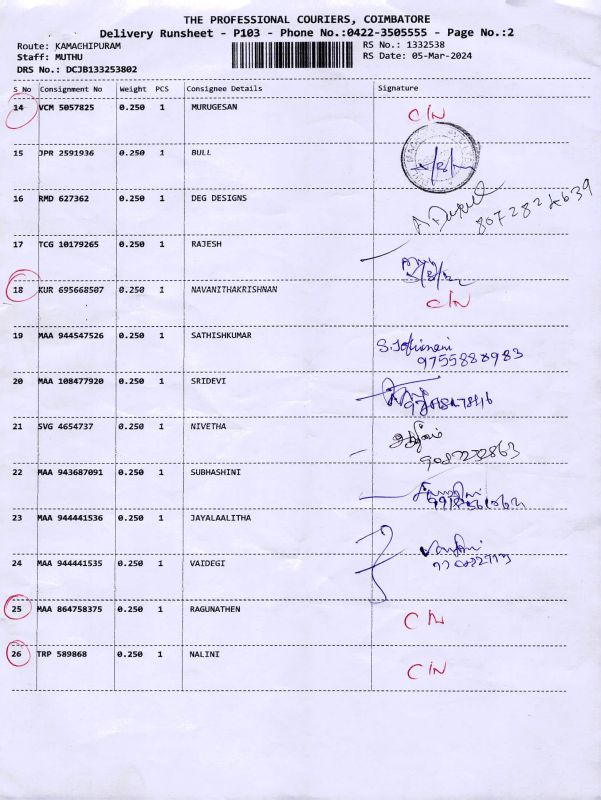 THE PROFESSIONAL COURIERS, COIMBATORE
Delivery Runsheet - P103 - Phone No.:0422-3505555 - Page No.:2
Route: KAMACHIPURAM RS No.: 1332538
Staff: MUTHU RS Date: 05-Mar-2024
DRS No.: DCJB133253802
S No Consignment No Weight PCS Consignee Details Signature
14 VCM 5057825 0.250 1 MURUGESAN C/N
15 JPR 2591936 0.250 1 BULL
16 RMD 627362 0.250 1 DEG DESIGNS
17 TCG 10179265 0.250 1 RAJESH
18 KUR 695668507 0.250 1 NAVANITHAKRISHNAN C/N
19 MAA 944547526 0.250 1 SATHISHKUMAR
9755888983
20 MAA 108477920 0.250 1 SRIDEVI
21 SVG 4654737 0.250 1 NIVETHA
22 MAA 943687091 0.250 1 SUBHASHINI
23 MAA 944441536 0.250 1 JAYALAALITHA
24 MAA 944441535 0.250 1 VAIDEGI
25 MAA 864758375 0.250 1 RAGUNATHEN C/N
26 TRP 589868 0.250 1 NALINI C/N